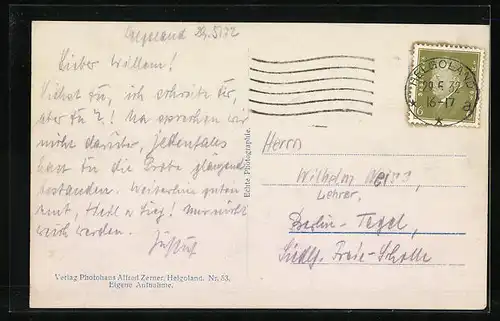 Helgoland 29.5.32
Lieber Willem!
Siehst Du, ich schreibe Dir,
aber Du ?! Na sprechen wir
nicht darüber, jedenfalls
hast Du die Probe glänzend
bestanden. Weiterhin guten
Mut, Heil u Sieg! Nur nicht
weich werden.
Justus
Verlag Photohaus Alfred Zerner, Helgoland. Nr. 53.
Eigene Aufnahme.
Echte Photographie.
HELGOLAND
29.5.32
16-17
* a
6 6
Herrn
Wilhelm Weiss,
Lehrer,
Berlin-Tegel,
Freie-Scholle